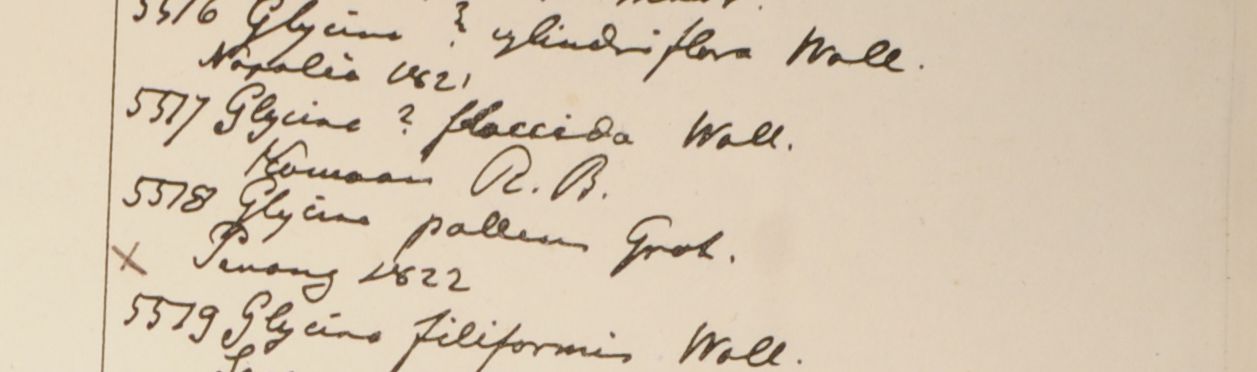 5516 Glycine ? cylindriflora Wall.
Napalia 1821
5517 Glycine ? flaccida Wall.
Kamaon R. B.
5518 Glycine pallens Grah.
× Penang 1822
5519 Glycine filiformis Wall.